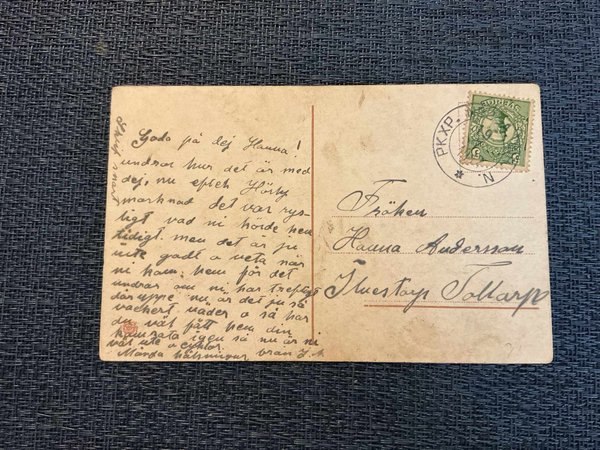 Goda på dej Hanna!
undrar hur det är med
dej, nu efteh Hörby
marknad det var rys-
ligt vad ni hörde hem
tidigt. men det är ju
inte godt o veta när
ni kom hem för det
undrar om ni har trefligt
där uppe nu är det ju så
vackert väder o så har
du väl fått hem din
kamrata igen så nu är ni
väl ute o cyklar.
Många hälsningar från
PKXP. N.
SVERIGE
5 5
Fröken
Hanna Andersson
Ilnestorp Tollarp